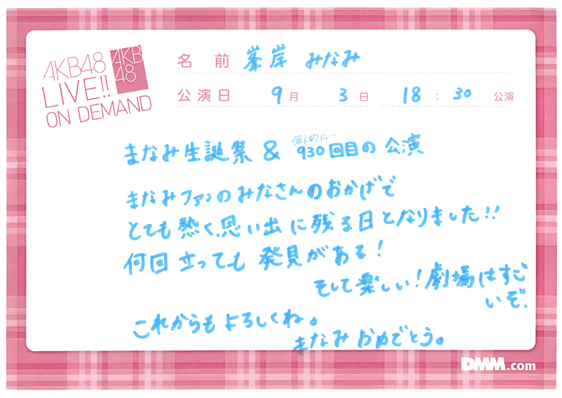 AKB48
LIVE!!
ON DEMAND
AKB
48
名前 峯岸 みなみ
公演日 9月 3日 18:30 公演
まなみ生誕祭 & 930回目の公演
個人的に…
まなみファンのみなさんのおかげで
とても熱く、思い出に残る日となりました!!
何回立っても発見がある!
そして楽しい!劇場はすご
いぞ.
これからもよろしくね。
まなみおめでとう。
DMM.com